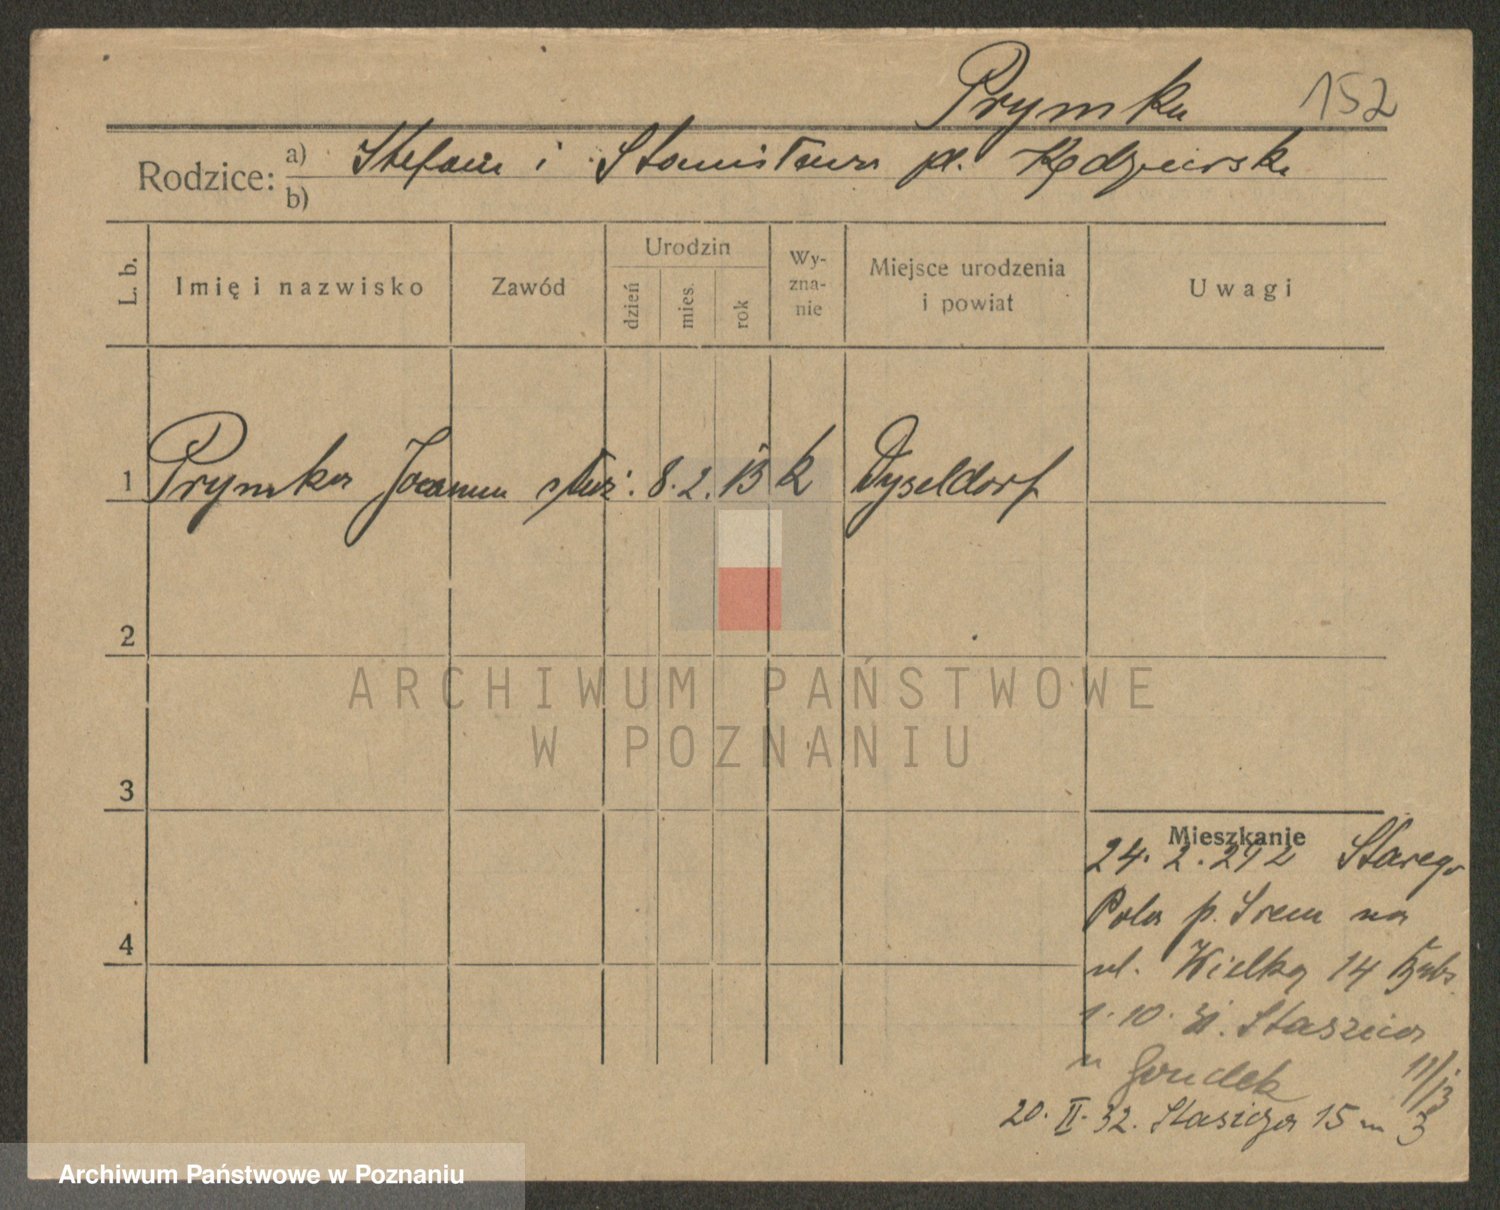 Prymka 152
Rodzice: a) Stefan i Stanisława
b)
L. b.
Imię i nazwisko
Zawód
Urodzin
dzień
mies.
rok
Wy-
zna-
nie
Miejsce urodzenia
i powiat
Uwagi
1 Prymka Joanna służ. 8. 2. 13 k Dyseldorf
2
3
4
Mieszkanie
24. 2. Starego
Pola p. Srem na
ul. Wielką 14
1. 10. 31. Staszica 11/13
u
20. II. 32. Stasicza 15 m 3
ARCHIWUM PAŃSTWOWE
W POZNANIU
Archiwum Państwowe w Poznaniu